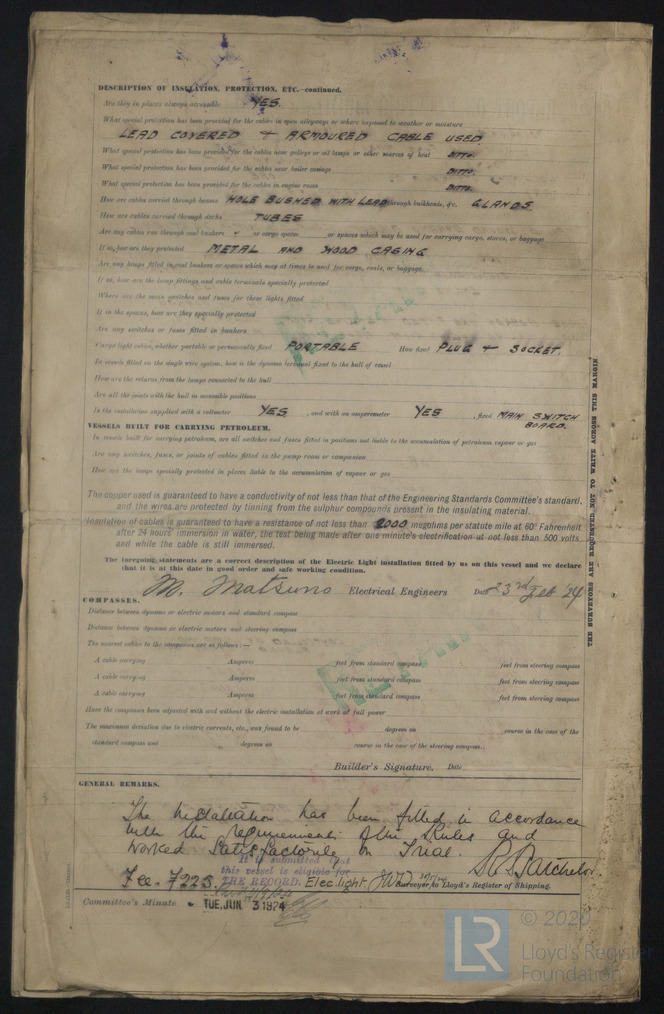 DESCRIPTION OF INSULATION, PROTECTION, ETC.—continued.
Are they in places always accessible YES.
What special protection has been provided for the cables in open alleyways or where exposed to weather or moisture
LEAD COVERED & ARMOURED CABLE USED
What special protection has been provided for the cables near galleys or oil lamps or other sources of heat DITTO.
What special protection has been provided for the cables near boiler casings DITTO.
What special protection has been provided for the cables in engine room DITTO.
How are cables carried through beams HOLE BUSHED WITH LEAD through bulkheads, &c. GLANDS
How are cables carried through decks TUBES
Are any cables run through coal bunkers or cargo spaces or spaces which may be used for carrying cargo, stores, or baggage
If so, how are they protected METAL AND WOOD CASING
Are any lamps fitted in coal bunkers or spaces which may at times be used for cargo, coals, or baggage
If so, how are the lamp fittings and cable terminals specially protected
Where are the main switches and fuses for these lights fitted
If in the spaces, how are they specially protected
Are any switches or fuses fitted in bunkers
Cargo light cables, whether portable or permanently fixed PORTABLE How fixed PLUG & SOCKET.
In vessels fitted on the single wire system, how is the dynamo terminal fixed to the hull of vessel
How are the returns from the lamps connected to the hull
Are all the joints with the hull in accessible positions
Is the installation supplied with a voltmeter YES , and with an amperemeter YES , fixed MAIN SWITCH
BOARD.
VESSELS BUILT FOR CARRYING PETROLEUM.
In vessels built for carrying petroleum, are all switches and fuses fitted in positions not liable to the accumulation of petroleum vapour or gas
Are any switches, fuses, or joints of cables fitted in the pump room or companion
How are the lamps specially protected in places liable to the accumulation of vapour or gas
The copper used is guaranteed to have a conductivity of not less than that of the Engineering Standards Committee's standard,
and the wires are protected by tinning from the sulphur compounds present in the insulating material.
Insulation of cables is guaranteed to have a resistance of not less than 2000 megohms per statute mile at 60° Fahrenheit
after 24 hours' immersion in water, the test being made after one minute's electrification at not less than 500 volts
and while the cable is still immersed.
The foregoing statements are a correct description of the Electric Light installation fitted by us on this vessel and we declare
that it is at this date in good order and safe working condition.
M. Matsuno Electrical Engineers Date 23rd Feb '24
COMPASSES.
Distance between dynamo or electric motors and standard compass
Distance between dynamo or electric motors and steering compass
The nearest cables to the compasses are as follows:—
A cable carrying Amperes feet from standard compass feet from steering compass
A cable carrying Amperes feet from standard compass feet from steering compass
A cable carrying Amperes feet from standard compass feet from steering compass
Have the compasses been adjusted with and without the electric installation at work at full power
The maximum deviation due to electric currents, etc., was found to be degrees on course in the case of the
standard compass and degrees on course in the case of the steering compass.
Builder's Signature. Date
GENERAL REMARKS.
The Installation has been fitted in accordance
with the requirements of the Rules and
worked Satisfactorily on Trial.
It is submitted that
this vessel is eligible for
THE RECORD. Elec. light.
Fee. ¥225. R Batchelor
Surveyor to Lloyd's Register of Shipping.
Committee's Minute TUE. JUN 3 1924
THE SURVEYORS ARE REQUESTED NOT TO WRITE ACROSS THIS MARGIN
LR
© 2020
Lloyd's Register
Foundation